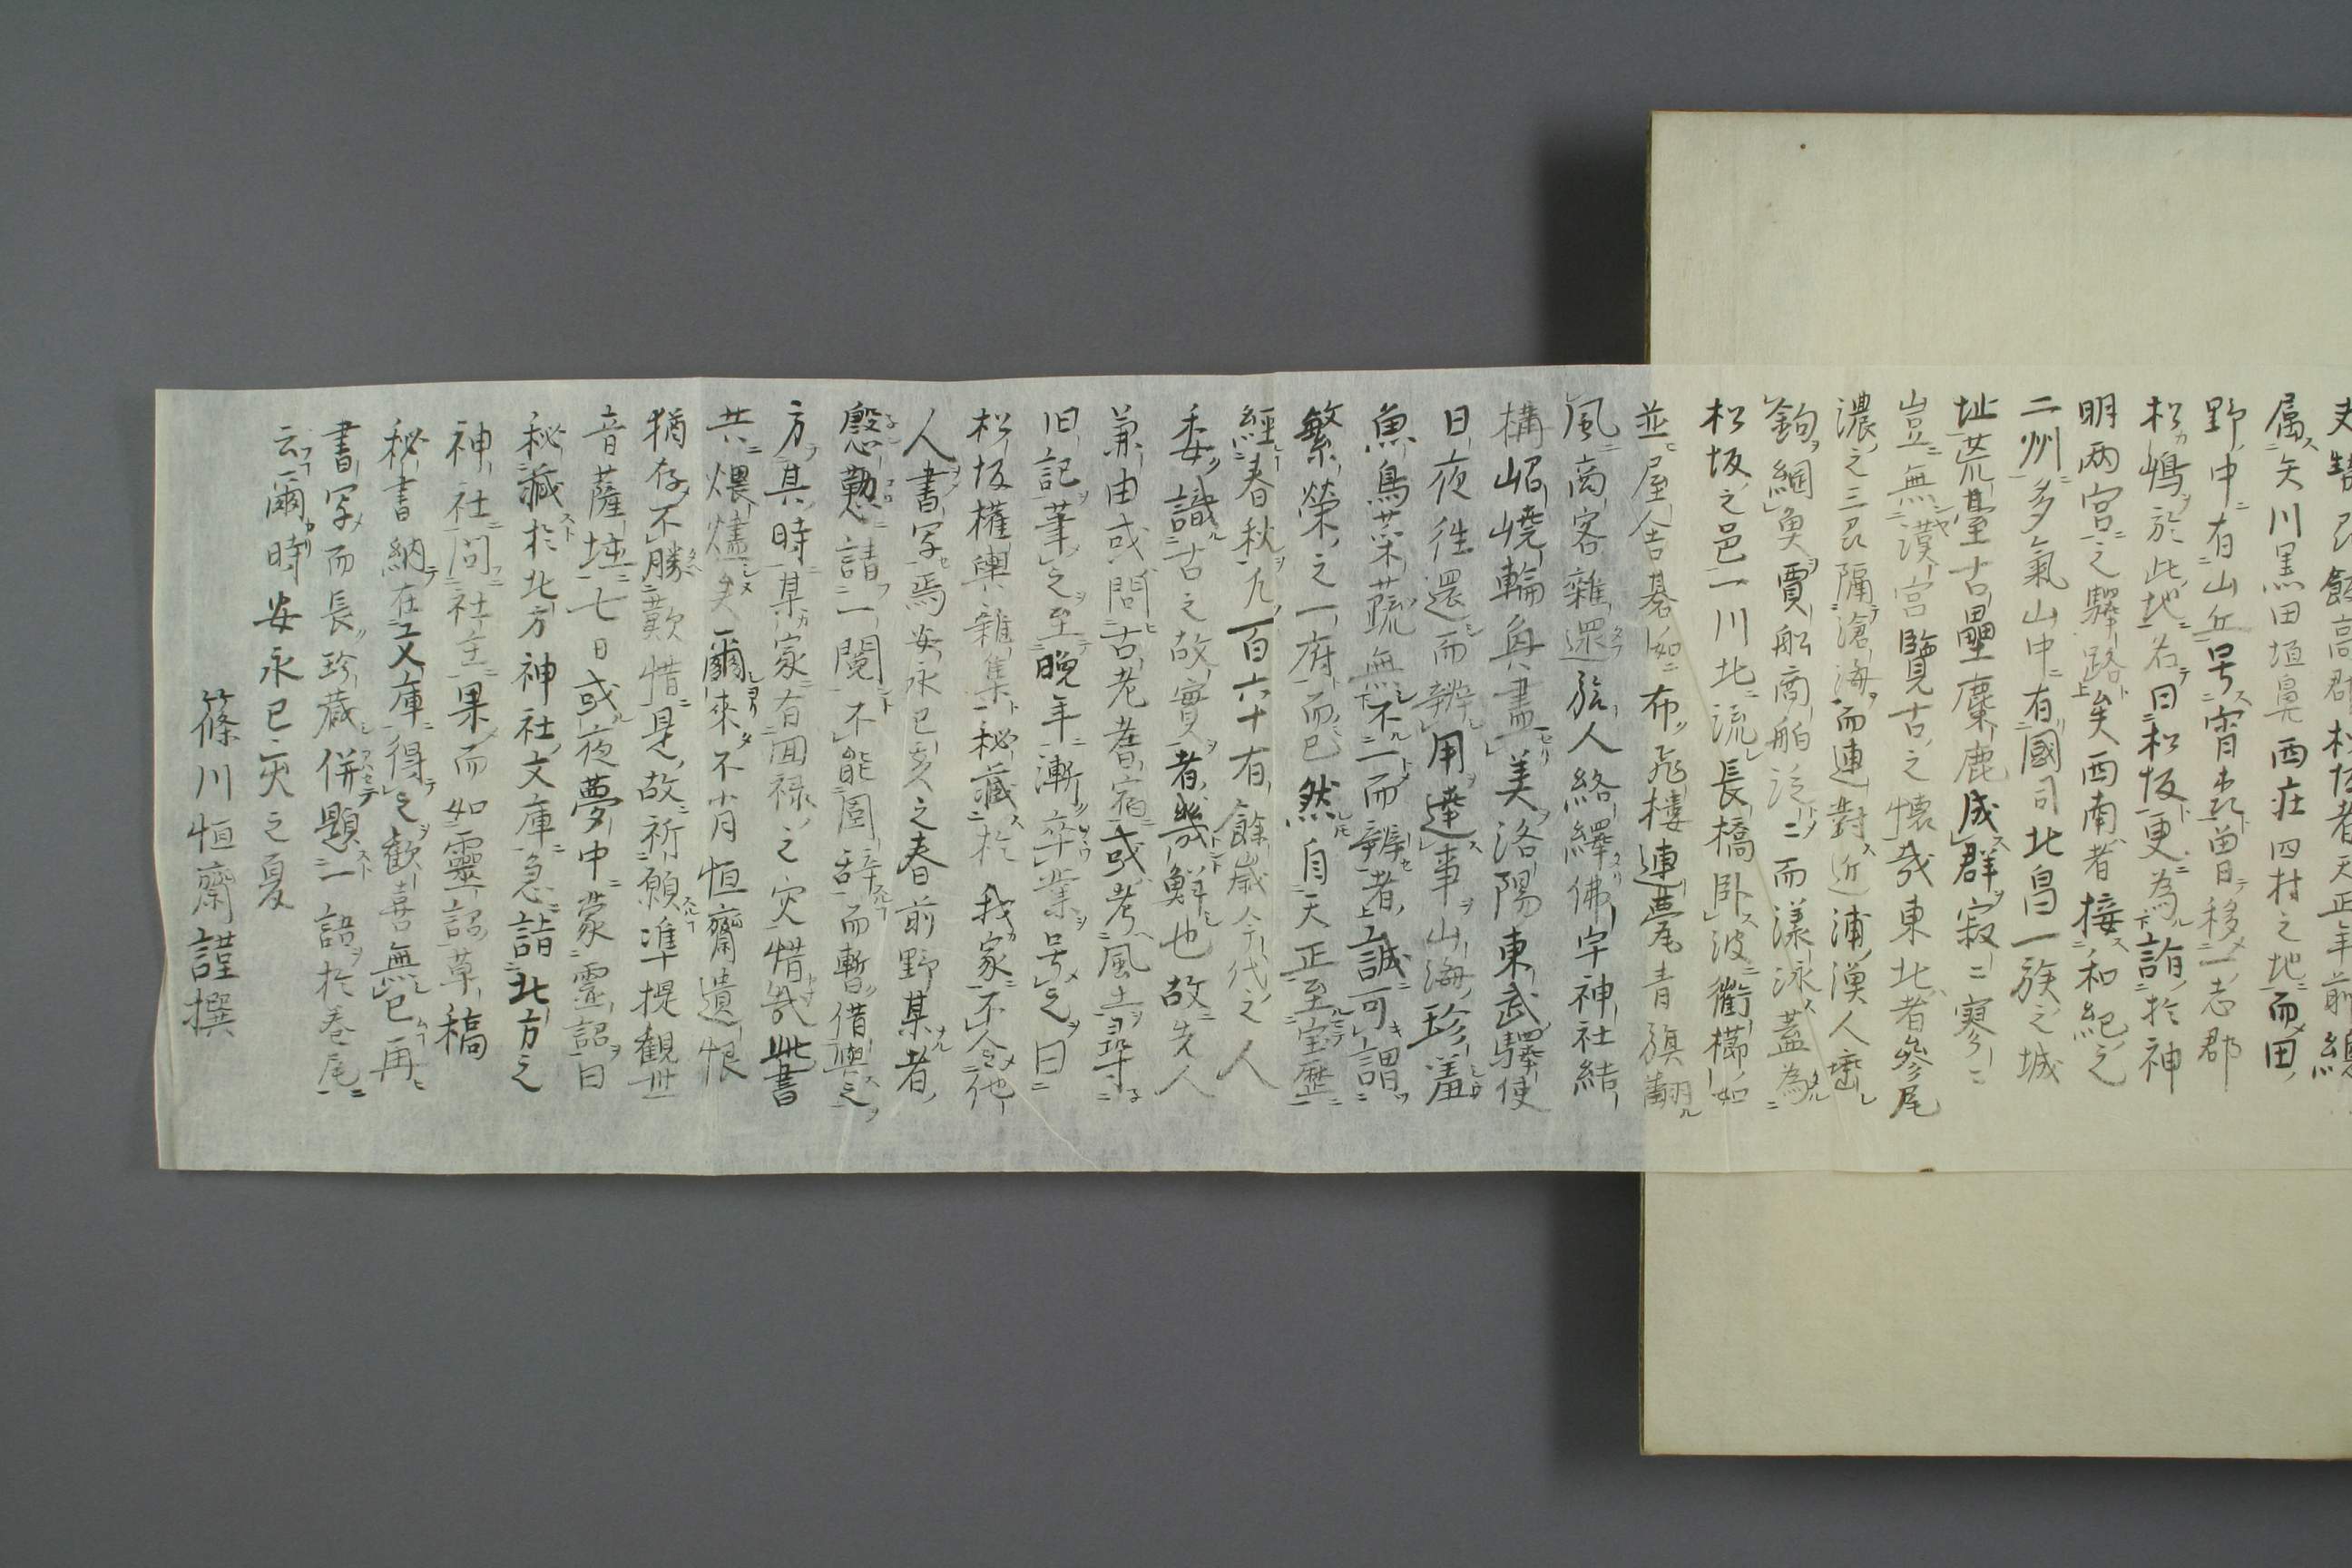 属矢川黒田垣鼻西庄四村之地而田
野中有山丘号宵森曽日移一志郡
松嶋於此地名曰松坂更為詣於神
明両宮之驛路矣西南者接和紀之
二州多氣山中有國司北畠一族之城
址荒臺古壘麋鹿成群寂〻寥〻
豈無漢宮覽古之懐哉東北者參尾
濃之三州隔滄海而連對近浦漢人
鉤網魚賈船商舶泛〻而漾泳蓋為
松坂之邑一川北流長橋臥波衢櫛如
並屋舎碁如布飛樓連甍青旗翻
風商客雜還旅人絡繹佛宇神社結
構岹嶢輪奐盡美洛陽東武驛使
日夜徃還而辨用達事山海珍羞
魚鳥菜蔬無不一而辨者誠可謂
繁榮之一府而已然自天正至宝歴
經春秋凢百六十有餘歳今代之人
委識古之故實者幾鮮也故先人
兼由或問古老耆宿或考風土尋
旧記筆之至晩年漸卒業号之曰
松坂權輿雜集秘藏於我家不令他
人書写焉安永己亥之春前野某者
慇懃請一閲不能固辞而暫借與之
方其時某家有回禄之灾惜哉此書
共煨燼矣爾來不肖恒齋遺恨
猶存不勝歎惜是故祈願準提観世
音薩埵一七日或夜夢中蒙霊詔曰
秘藏於北方神社文庫急詣北方之
神社問社主果而如靈詔草稿
秘書納在文庫得之歓喜無已再
書写而長珍蔵併題一語於巻尾
云爾時安永己亥之夏
篠川恒齋謹撰